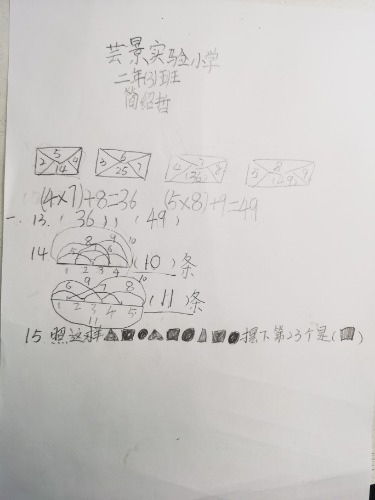 芸景实验小学
二年(3)班
简绍哲
5 2 14 4
6 3 25 7
7 4 (36) 8
8 5 (49) 9
(4×7)+8=36 (5×8)+9=49
一. 13.(36),(49)
8 9 10
14 5 6 7 (10)条
1 2 3 4
6 9 7 8 10 (11)条
1 2 3 4 5
11
15.照这样▲■●▲■●■●▲■●摆下第23个是(■)